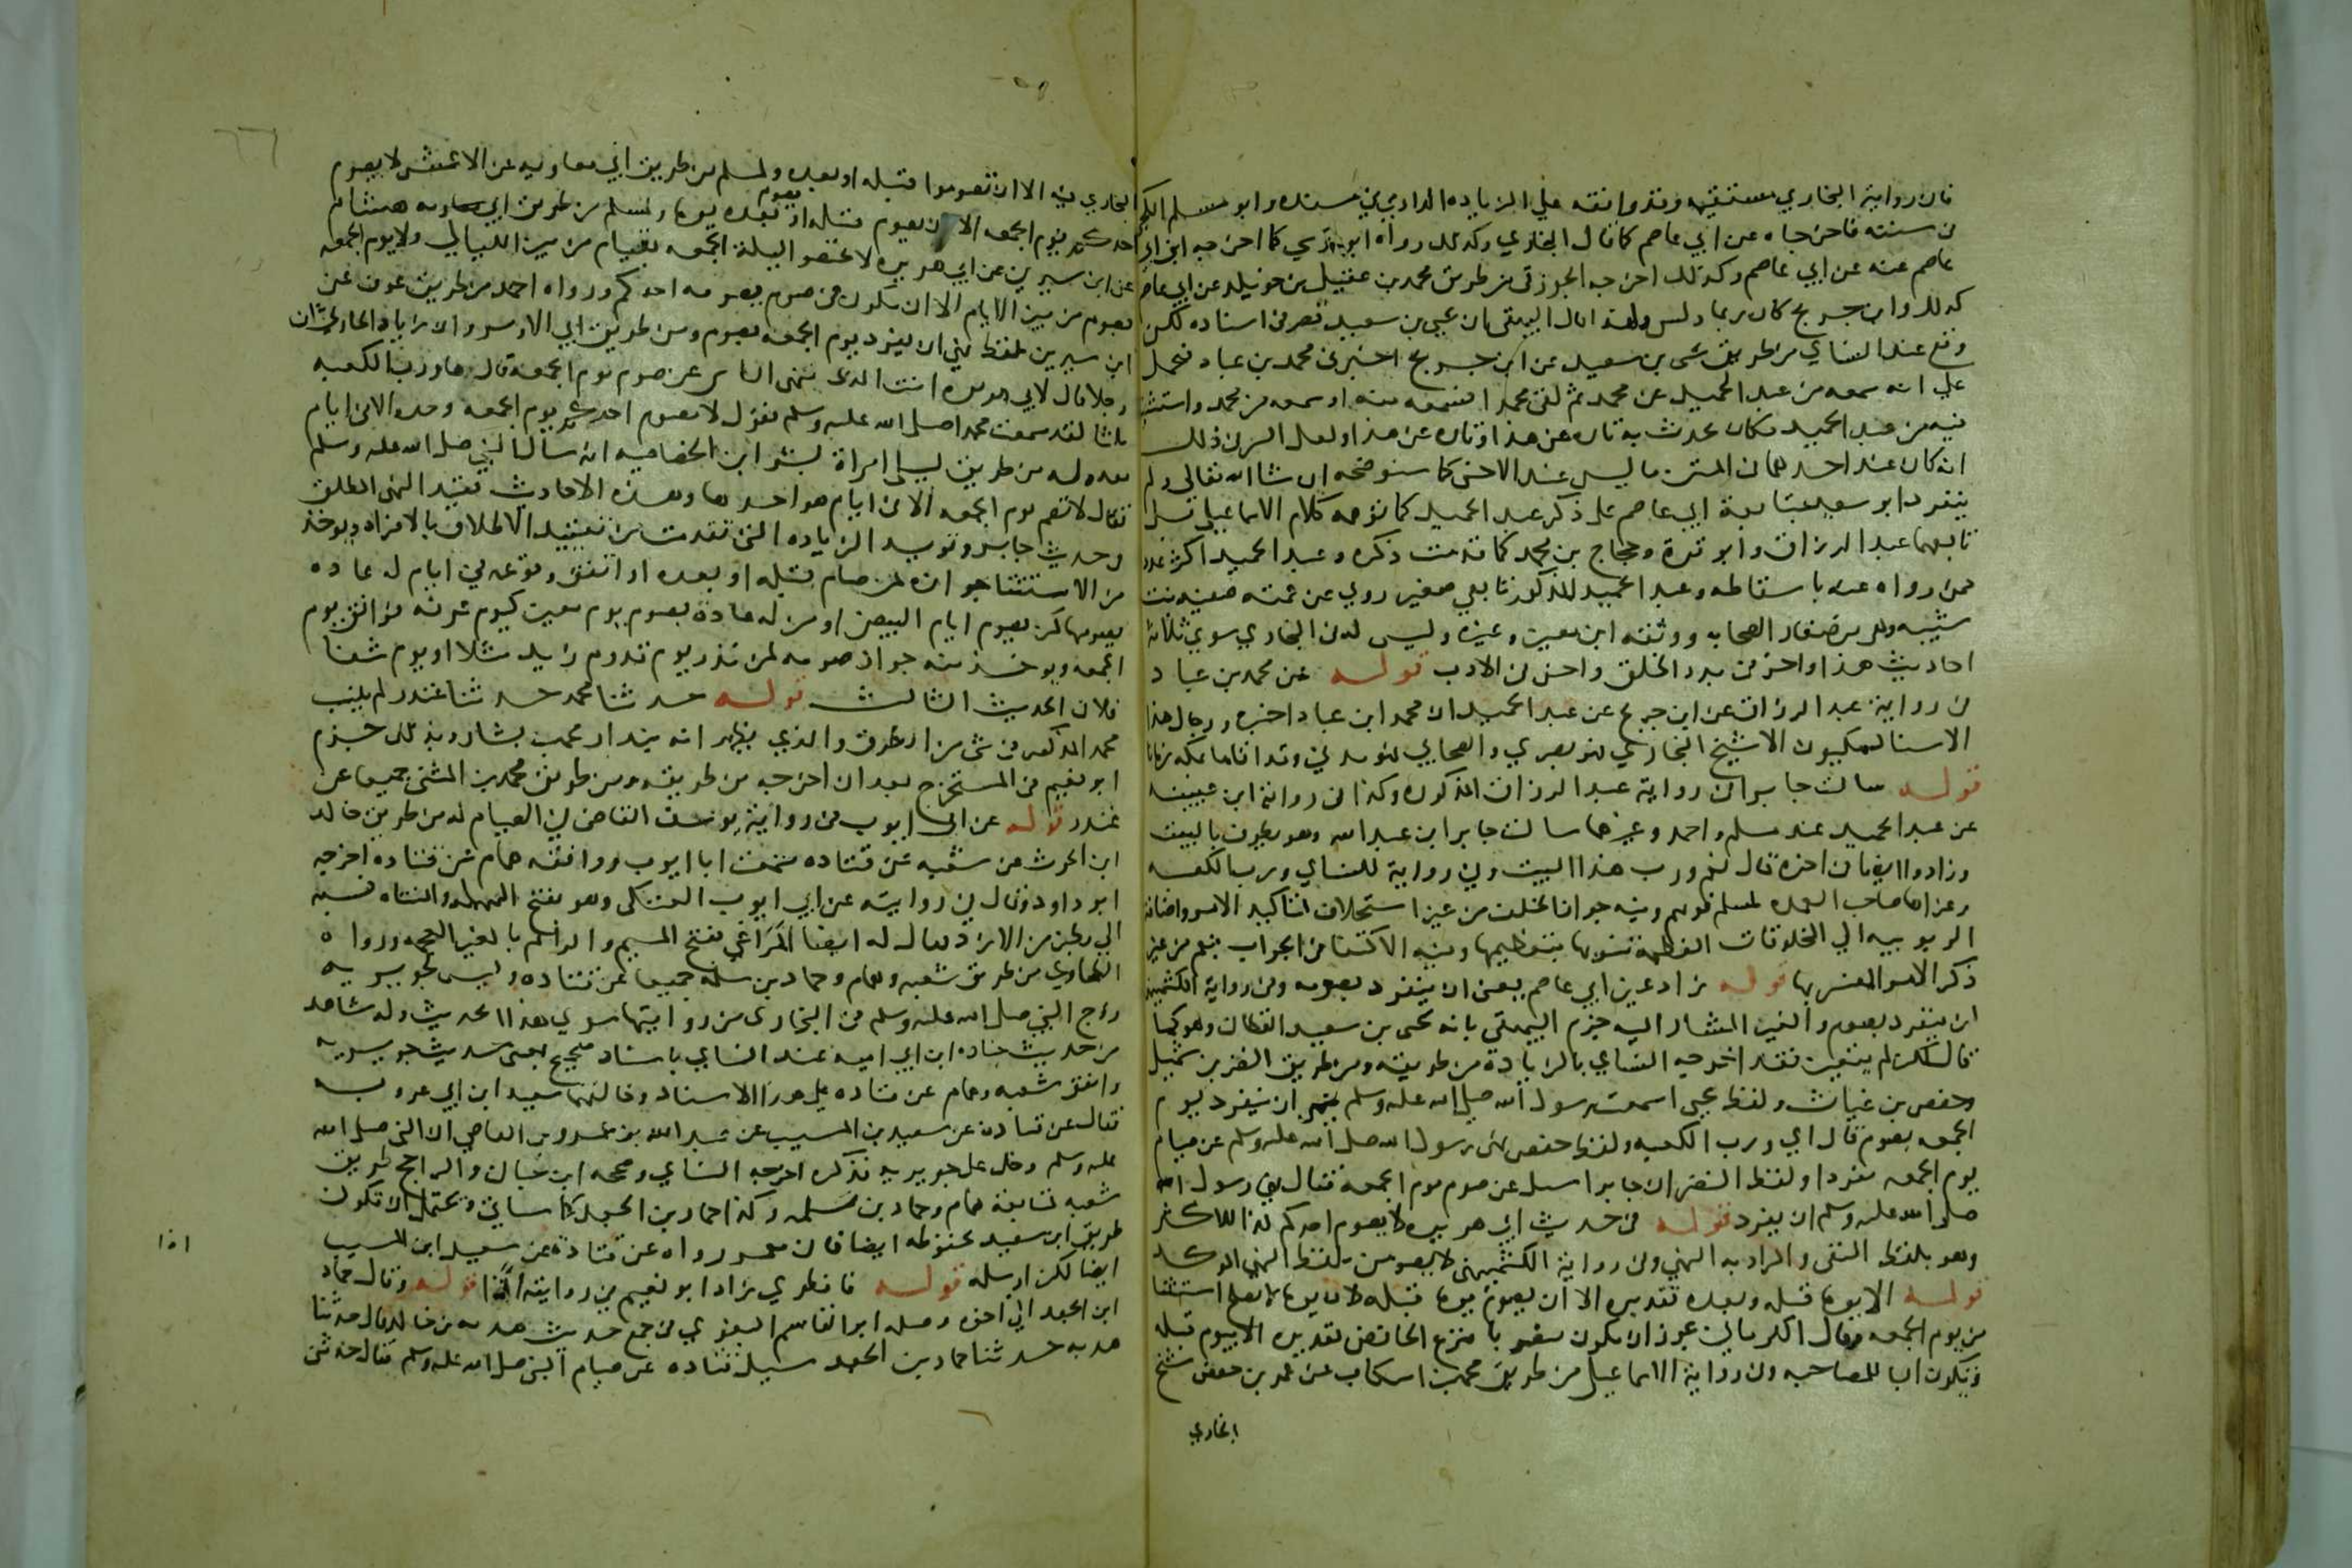 فان رواية البخاري مستقيمه وقد وافقه علي الزياده الدارمي في مسنده وابو مسلم الكجي
في سننه فاخرجاه عن ابي عاصم كما قال البخاري وكذلك رواه ابو موسي كما اخرجه ابن ابي
عاصم عنه عن ابي عاصم وكذلك اخرجه الجوزقي من طريق محمد بن عقيل بن خويلد عن ابي عاصم
كذلك وابن جريج كان ربما دلس ولهذا قال البيهقي ان يحيي بن سعيد قصر في اسناده لكن
وقع عند النساي من طريق يحيى بن سعيد عن ابن جريج اخبرني محمد بن عباد فيحمل
علي انه سمعه من عبد الحميد عن محمد ثم لقي محمدا فسمعه منه او سمعه من محمد واستثبت
فيه من عبد الحميد فكان يحدث به تاره عن هذا وتاره عن هذا ولعل السر في ذلك
انه كان عند احدهما في المتن ما ليس عند الاخر كما سنوضحه ان شا الله تعالي ولم
ينفرد ابو سعيد بمتابعة ابي عاصم على ذكر عبد الحميد كما يوهمه كلام الاسماعيلي بل
تابعهما عبد الرزاق وابو قرة وحجاج بن محمد كما قدمت ذكره وعبد الحميد اكثر عدد
ممن رواه عنه باسقاطه وعبد الحميد المذكور تابعي صغير روي عن عمته صفيه بنت
شيبه وهي من صغار الصحابه ووثقه ابن معين وغيره وليس له في البخاري سوي ثلاثة
احاديث هذا واخر في بدء الخلق واخر في الادب قوله عن محمد بن عباد
في رواية عبد الرزاق عن ابن جريج عن عبد الحميد ان محمد ابن عباد اخبره ورجال هذا
الاسناد مكيون الا شيخ البخاري فهو بصري والصحابي فهو مدني وقد اقاما بمكه زمانا
قوله سالت جابرا في رواية عبد الرزاق المذكوره وكذا في رواية ابن عيينه
عن عبد الحميد عند مسلم واحمد وغيرهما سالت جابر ابن عبد الله وهو يطوف بالبيت
وزادوا ايضا في اخره قال نعم ورب هذا البيت وفي رواية للنساي ورب الكعبه
وعزاها صاحب العمده لمسلم فوهم وفيه جواز الحلف من غير استحلاف لتاكيد الامر واضافة
الربوبيه الي المخلوقات المعظمة تنويها بتعظيمها وفيه الاكتفا في الجواب بنعم من غير
ذكر الامر المفسر بها قوله زاد غير ابي عاصم يعني ان ينفرد بصومه وفي رواية الكشميهني
ان ينفرد بصوم والغير المشار اليه جزم البيهقي بانه يحيى بن سعيد القطان وهو كما
قال لكن لم يتعين فقد اخرجه النساي بالزيادة من طريقه ومن طريق النضر بن شميل
وحفص بن غياث ولفظ يحيى اسمعت رسول الله صلى الله عليه وسلم ينهي ان ينفرد يوم
الجمعه بصوم قال اي ورب الكعبه ولفظ حفص نهى رسول الله صلى الله عليه وسلم عن صيام
يوم الجمعه مفردا ولفظ النضر ان جابرا سيل عن صوم يوم الجمعه فقال نهي رسول الله
صلى الله عليه وسلم ان يفرد قوله في حديث ابي هريره لا يصوم احدكم كذا للاكثر
وهو بلفظ النفي والمراد به النهي وفي رواية الكشميهني لا يصومن بلفظ النهي الموكد
قوله الا يوما قبله وبعده تقديره الا ان يصوم يوما قبله لان يوما لا يصلح استثنا
من يوم الجمعه وقال الكرماني يجوز ان يكون منصوبا بنزع الخافض تقديره الا بيوم قبله
وتكون البا للمصاحبه وفي رواية الاسماعيلي من طريق محمد بن اسكاب عن عمر بن حفص شيخ
البخاري
البخاري فيه الا ان تصوموا قبله او بعده ولمسلم من طريق ابي معاويه عن الاعمش لا يصوم
احدكم يوم الجمعه الا ان يصوم قبله او يصوم بعده يوما ولمسلم من طريق هشام
عن ابن سيرين عن ابي هريره لا تخصوا ليلة الجمعه بقيام من بين الليالي ولا يوم الجمعه
بصوم من بين الايام الا ان يكون في صوم يصومه احدكم ورواه احمد من طريق عوف عن
ابن سيرين بلفظ نهي ان يفرد يوم الجمعه بصوم ومن طريق ابي الاوبر زياد الحارثي ان
رجلا قال لابي هريره انت الذي تنهى الناس عن صوم يوم الجمعه قال ها ورب الكعبه
ثلثا لقد سمعت محمدا صلى الله عليه وسلم يقول لا يصوم احدكم يوم الجمعه وحده الا في ايام
معه وله من طريق ليلى امراة بشير ابن الخصاصيه انه سال النبي صلى الله عليه وسلم
فقال لا تصم يوم الجمعه الا في ايام هو احدها وهذه الاحاديث تقيد النهي المطلق
وحديث جابر وتويد الزياده التي تقدمت من تقييد الاطلاق بالافراد ويوخذ
من الاستثنا جوازه لمن صام قبله او بعده او اتفق وقوعه في ايام له عاده
بصومها كمن يصوم ايام البيض او من له عادة بصوم يوم معين كيوم عرفه فوافق يوم
الجمعه ويوخذ منه جواز صومه لمن نذر يوم قدوم زيد مثلا او يوم شفا
فلان الحديث الثالث قوله حدثنا محمد حدثنا غندر لم ينسب
محمد المذكور في شي من الطرق والذي يظهر انه بندار محمد بن بشار وبذلك جزم
ابو نعيم في المستخرج بعد ان اخرجه من طريقه ومن طريق محمد بن المثنى جميعا عن
غندر قوله عن ابي ايوب في رواية يوسف القاضي في الصيام له من طريق خالد
ابن الحرث عن شعبه عن قتاده سمعت ابا ايوب ووافقه همام عن قتاده اخرجه
ابو داود وقال في روايته عن ابي ايوب العتكي وهو بفتح المهمله والمثناه نسبه
الي بطن من الازد ويقال له ايضا المَرَاغي بفتح الميم والراء ثم بالغين المعجمه ورواه
الطحاوي من طريق شعبه وهمام وحماد بن سلمه جميعا عن قتاده وليس لجويريه
زوج النبي صلى الله عليه وسلم في البخاري من روايتها سوي هذا الحديث وله شاهد
من حديث جناده ابن ابي اميه عند النساي باسناد صحيح بمعنى حديث جويريه
واتفق شعبه وهمام عن قتاده علي هذا الاسناد وخالفهما سعيد ابن ابي عروبه
فقال عن قتاده عن سعيد بن المسيب عن عبد الله بن عمرو بن العاصي ان النبي صلى الله
عليه وسلم دخل على جويريه فذكره اخرجه النساي وصححه ابن حبان والراجح طريق
شعبه لمتابعة همام وحماد بن سلمه وكذا حماد بن الجعد كما سياتي ويحتمل ان تكون
طريق ابن سعيد محفوظه ايضا فان معمر رواه عن قتادة عن سعيد ابن المسيب
ايضا لكن ارسله قوله فافطري زاد ابو نعيم في روايته اذا قوله وقال حماد
ابن الجعد الي اخره وصله ابو القاسم البغوي في جمع حديث هدبه بن خالد قال حدثنا
هدبه حدثنا حماد بن الجعد سيل قتاده عن صيام النبي صلى الله عليه وسلم فقال حدثني
اذا